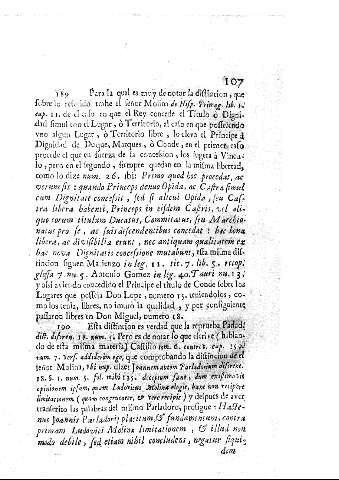 107
189 Para la qual es muy de notar la distincion, que
sobre lo referido trahe el señor Molina de Hisp. Primog. lib. 1.
cap. 11. de el caso en que el Rey concede el Titulo ò Digni-
dad simul con el Lugar, ò Territorio, al caso en que posseiendo
vno algun Lugar, ò Territorio libre, lo eleva el Principe à
Dignidad de Duque, Marques, ò Conde, en el primer caso
procede el que en fuerza de la concesion, los sugeta à Vincu-
lo, pero en el segundo, siempre quedan en la misma libertad,
como lo dize num. 26. ibi: Primo quod hoc procedat, ac
verum sit: quando Princeps denuo Opida, ac Castra simul
cum Dignitate concessit, sed si alicui Opida, seu Cas-
tra libera habenti, Princeps in eisdem Castris, vel ali-
quo eorum titulum Ducatus, Commitatus, seu Marchio-
natus pro se, ac suis discendentibus concedat: hac bona
libera, ac divisibilia erunt, nec antiquam qualitatem ex
hac nova Dignitatis concesione mutabunt; esta misma dis-
tincion siguen Matienzo in leg. 11. tit. 7. lib. 5. recop.
glosa 7. nu. 5. Antonio Gomez in leg. 40. Tauri nu. 13.
y assi aviendo concedido el Principe el titulo de Conde sobre los
Lugares que posseìa Don Lope, numero 15. teniendolos, co-
mo los tenia, libres, no inmutò la qualidad, y por consiguiente
passaron libres en Don Miguel, numero 18.
190 Esta distincion es verdad que la reprueba Parlad.
dist. diferen. 18. num. 5. Pero es de notar lo que escrive (hablan-
do de esta misma materia) Castillo tom. 6. controv. cap.
num. 7. vers. addiderim ego, que comprobando la distincion de el
señor Molina, vbi sup. dize: Joannem autem Parladorium diferent.
18. §. 1. num. 5. fol. mihi 135. deceptum fuisse, dum existimavit
opinionem ipsam, quam Ludovicus Molina elegit, hanc non recipere
limitationem (quam congruenter, & vere recipit) y despues de aver
transcrito las palabras del mismo Parladoro, prosigue: Hacte-
nus Joannis Parladorij placitum, & fundamentum, contra
primam Ludovici Molina limitationem, & illud non
modo debile, sed etiam nihil concludens, negatur siqui-
dem